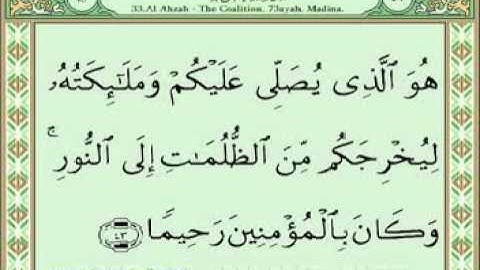 33.Al Ahzab - The Coalition. 73ayah. Madina.
هُوَ ٱلَّذِى يُصَلِّى عَلَيْكُمْ وَمَلَـٰٓئِكَتُهُۥ
لِيُخْرِجَكُم مِّنَ ٱلظُّلُمَـٰتِ إِلَى ٱلنُّورِ ۚ
وَكَانَ بِٱلْمُؤْمِنِينَ رَحِيمًا ٤٣